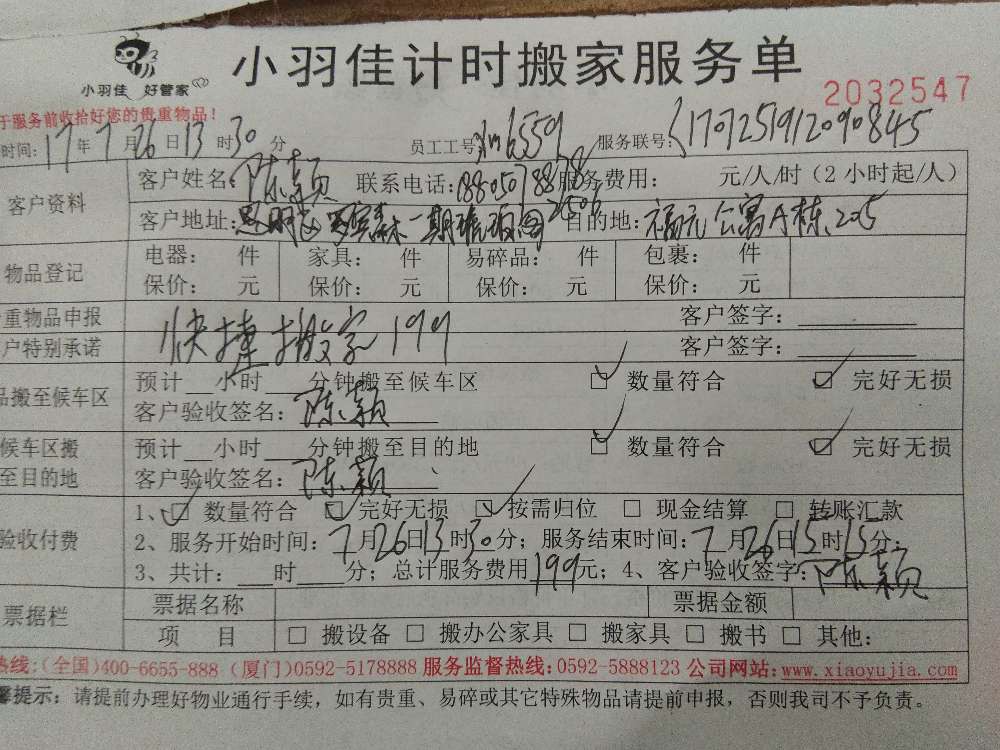 小羽佳 好管家
小羽佳计时搬家服务单
2032547
于服务前收拾好您的贵重物品！
时间：17年7月26日13时30分 员工工号： 6559 服务联号：1707251912090845
客户资料 客户姓名：陈颖 联系电话： 服务费用： 元/人/时（2小时起/人）
客户地址：思明区 一期 2506 目的地：福元公寓A栋205
物品登记 电器： 件 家具： 件 易碎品： 件 包裹： 件
保价： 元 保价： 元 保价： 元 保价： 元
重物品申报 客户签字：
快捷搬家199
户特别承诺 客户签字：
品搬至候车区 预计__小时____分钟搬至候车区 ☑ 数量符合 ☑ 完好无损
客户验收签名：陈颖
候车区搬至目的地 预计__小时____分钟搬至目的地 ☑ 数量符合 ☑ 完好无损
客户验收签名：陈颖
验收付费 1、☑ 数量符合 ☑ 完好无损 ☑ 按需归位 □ 现金结算 □ 转账汇款
2、服务开始时间：7月26日13时30分；服务结束时间：7月26日15时15分；
3、共计：___时____分；总计服务费用199元；4、客户验收签字：陈颖
票据栏 票据名称 票据金额
项 目 □ 搬设备 □ 搬办公家具 □ 搬家具 □ 搬书 □ 其他：
热线：（全国）400-6655-888（厦门）0592-5178888 服务监督热线：0592-5888123 公司网站：www.xiaoyujia.com
馨提示：请提前办理好物业通行手续，如有贵重、易碎或其它特殊物品请提前申报，否则我司不予负责。